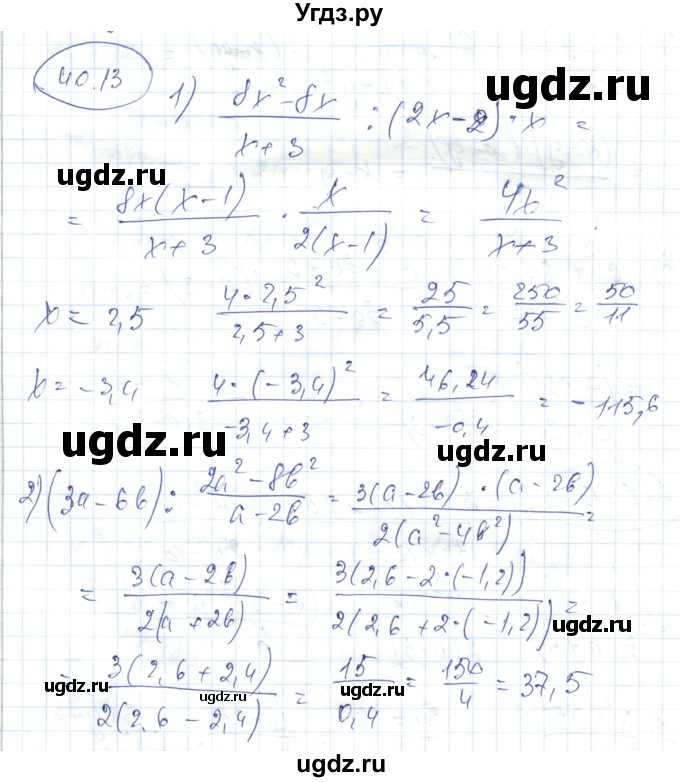 Угдз.ру
ugdz.ru
40.13
1) (8x²-8x)/(x+3) : (2x-2)·x =
ugdz.ru
ugdz.ru
= 8x(x-1)/(x+3) · x/(2(x-1)) = 4x²/(x+3)
x = 2,5   4·2,5²/(2,5+3) = 25/5,5 = 250/55 = 50/11
x = -3,4   4·(-3,4)²/(-3,4+3) = 46,24/-0,4 = -115,6
ugdz.ru
ugdz.ru
2) (3a-6b) : (2a²-8b²)/(a-2b) = 3(a-2b)·(a-2b)/(2(a²-4b²)) =
= 3(a-2b)/(2(a+2b)) = 3(2,6-2·(-1,2))/(2(2,6+2·(-1,2))) =
ugdz.ru
ugdz.ru
= 3(2,6+2,4)/(2(2,6-2,4)) = 15/0,4 = 150/4 = 37,5
ugdz.ru
ugdz.ru
ugdz.ru
ugdz.ru
ugdz.ru